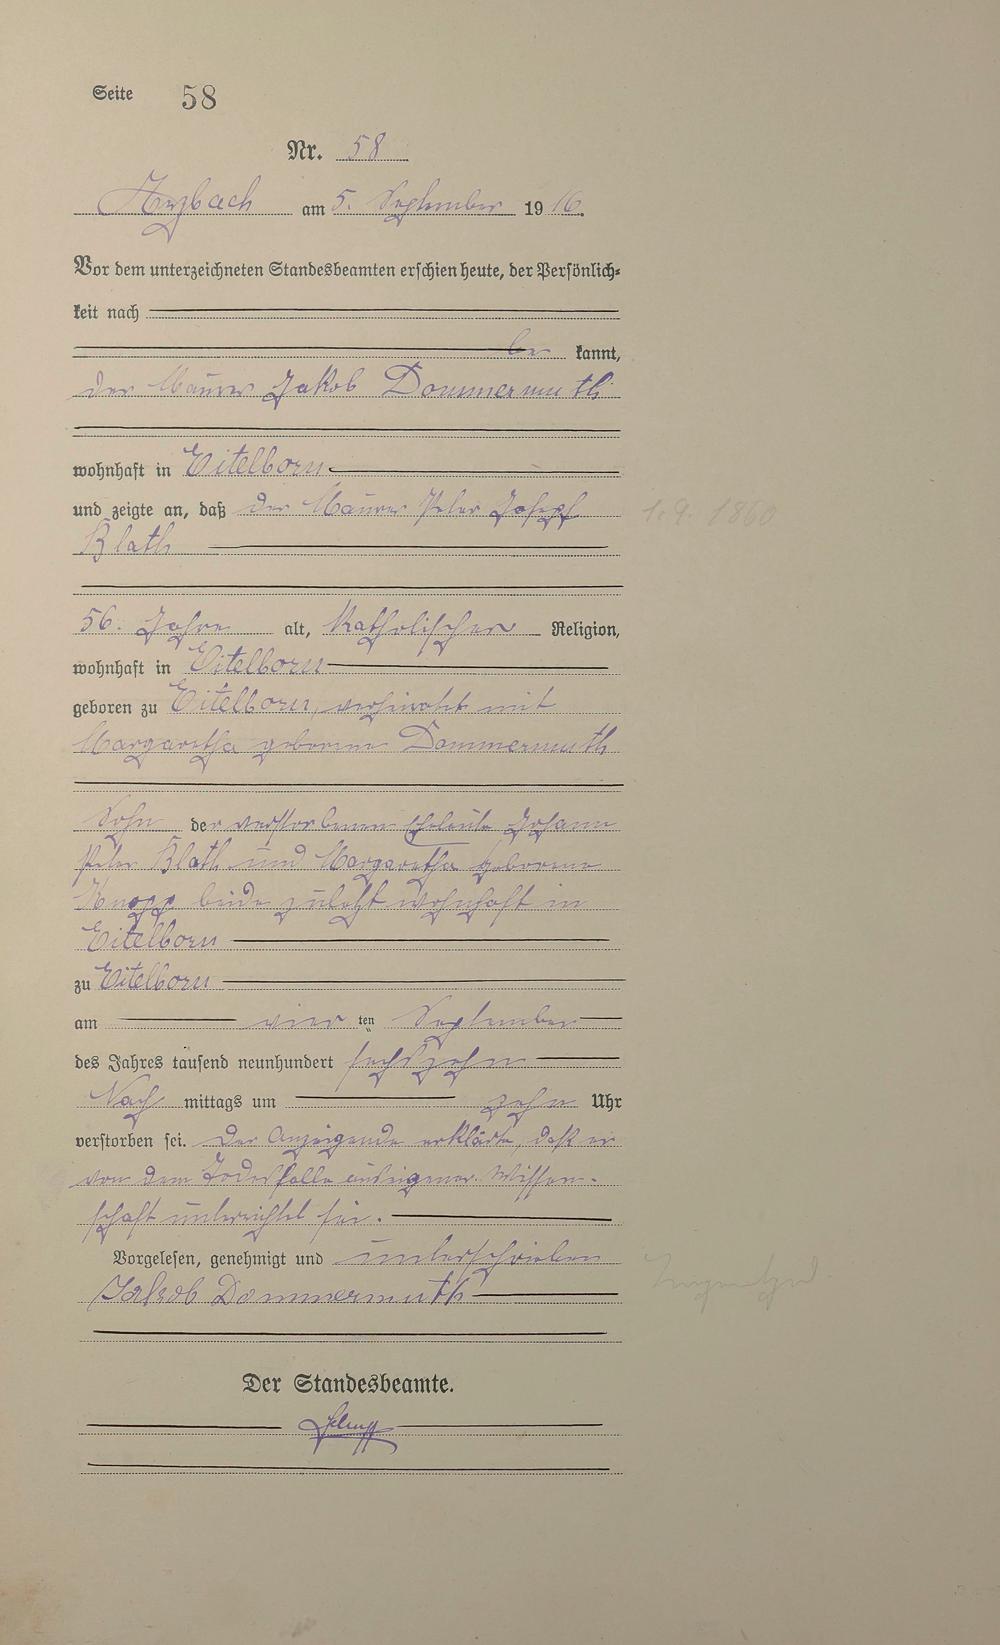 Seite 58
Nr. 58
Arzbach am 5. September 1916.
Vor dem unterzeichneten Standesbeamten erschien heute, der Persönlich-
keit nach
be kannt,
der Maurer Jakob Dommermuth
wohnhaft in Eitelborn
und zeigte an, daß der Maurer Peter Josepf
1. 9. 1860
Blath
56. Jahre alt, Katholischer Religion,
wohnhaft in Eitelborn
geboren zu Eitelborn, verheiratet mit
Margaretha geborene Dommermuth
Sohn der verstorbenen Eheleute Johann
Peter Blath und Margaretha geborene
Knopp beide zuletzt wohnhaft in
Eitelborn
zu Eitelborn
am vier ten September
des Jahres tausend neunhundert sechszehn
Nach mittags um zehn Uhr
verstorben sei. Der Anzeigende erklärte, daß er
von dem Todesfalle aus eigener Wissen-
schaft unterrichtet sei.
Vorgelesen, genehmigt und unterschrieben
Jakob Dommermuth
Der Standesbeamte.